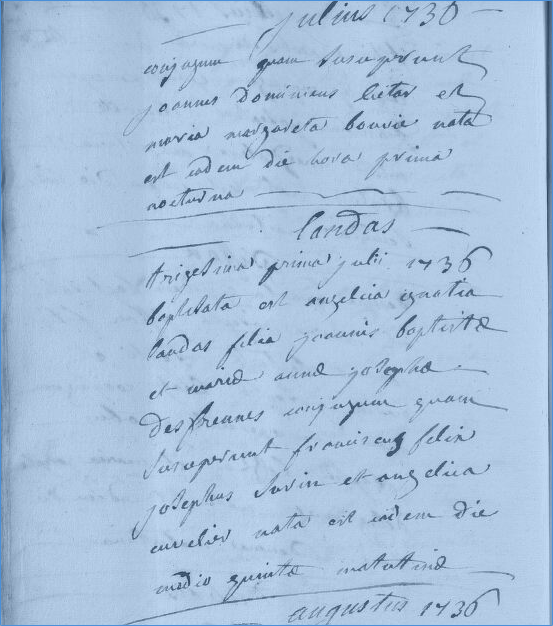 Julius 1736
conjugum quam susceperunt
joannes Dominicus lietar et
maria margareta bouvie nata
est eadem die hora prima
nocturna
landas
trigesima prima julii 1736
baptisata est angelica ignatia
landas filia joannis baptistæ
et mariæ annæ josephæ
desfrennes conjugum quam
susceperunt franciscus felix
josephus surin et angelica
cuvelier nata est eadem die
medio quintæ matutinæ
augustus 1736